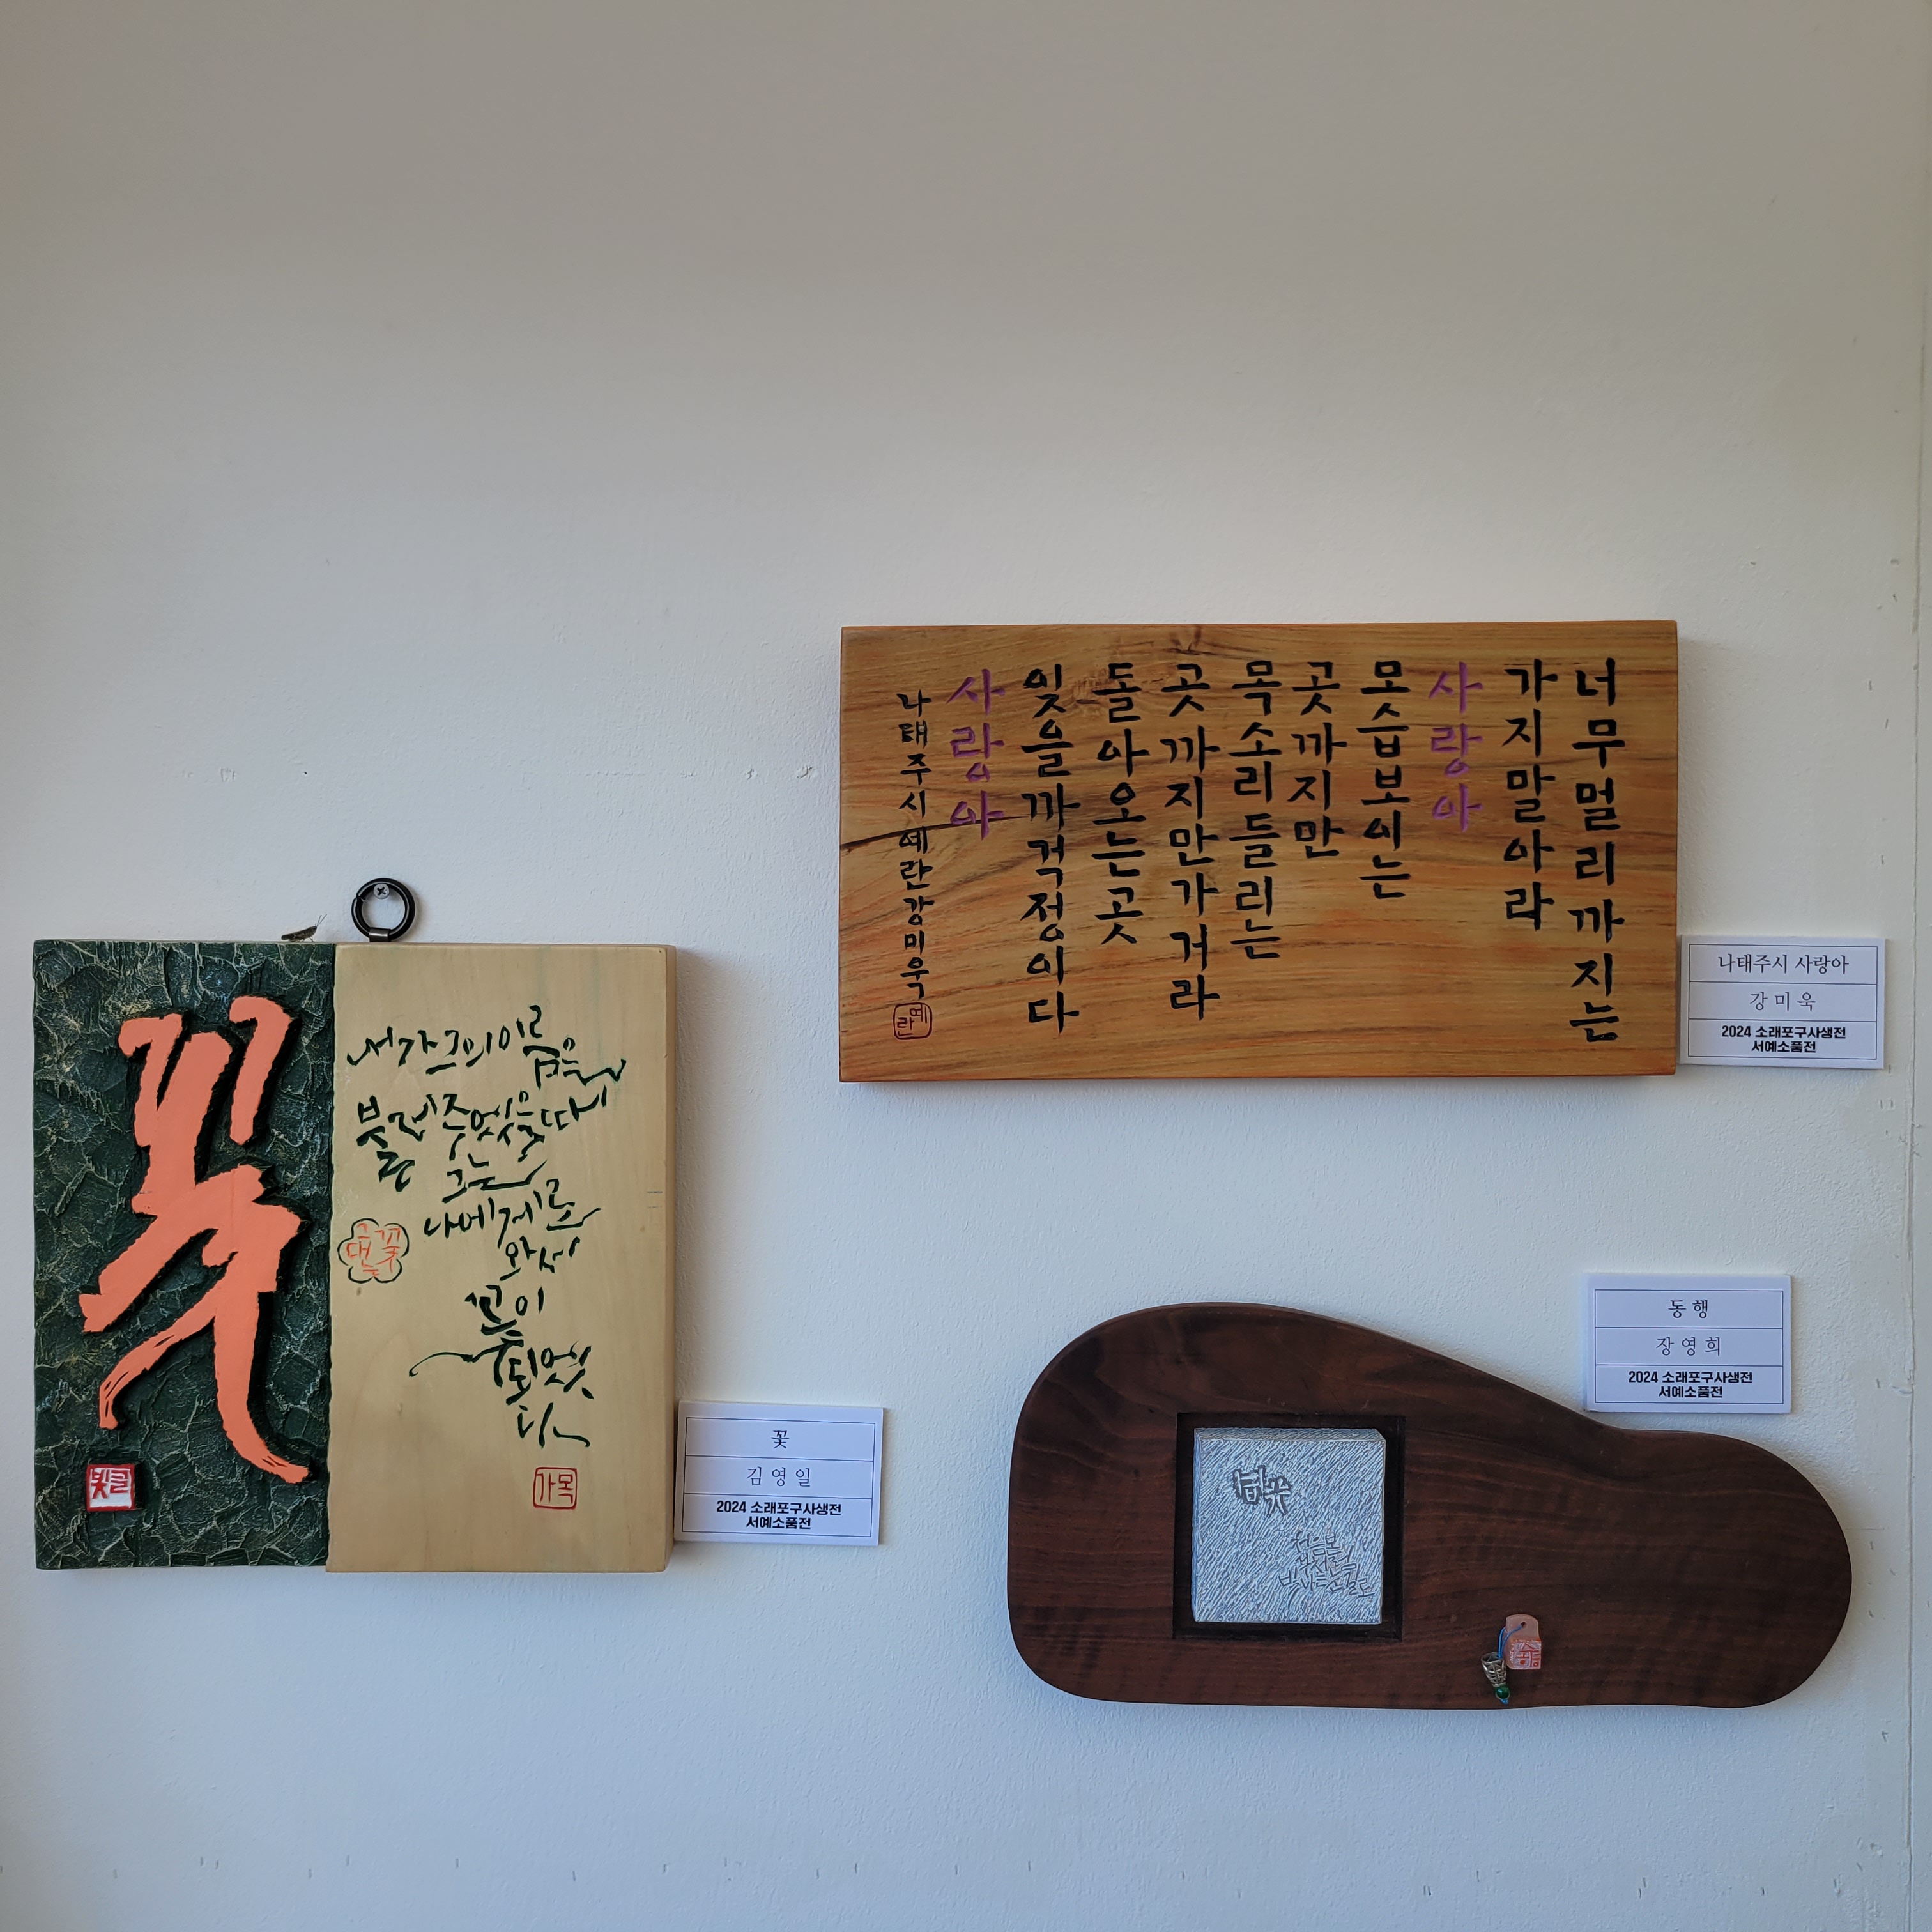 꽃
내가 그의 이름을
불러 주었을 때
그는
나에게로
와서
꽃이
되었
다
그대는 꽃
가목
꽃
김영일
2024 소래포구사생전
서예소품전
너무멀리까지는
가지말아라
사랑아
모습보이는
곳까지만
목소리들리는
곳까지만가거라
돌아오는곳
잊을까걱정이다
사랑아
나태주시예란강미욱
예란
나태주시 사랑아
강미욱
2024 소래포구사생전
서예소품전
동행
장영희
2024 소래포구사생전
서예소품전